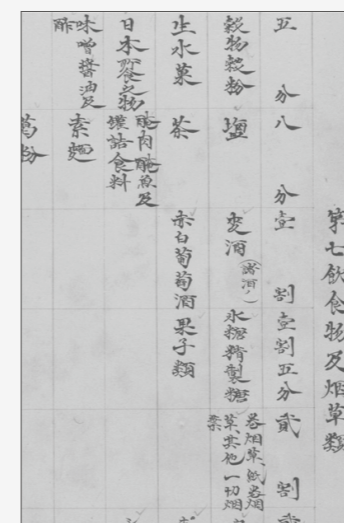 第七飲食物及烟草類
五分 八分 壹割 壹割五分 貳割
穀物穀粉 鹽 麦酒 氷糖精製糖 巻烟草、紙巻烟
草其他一切烟
葉
生水菓 茶 赤白葡萄酒 果子類
日本所産之物 醃肉醃魚及
罐詰食料
味噌醬油及 素麵
酢
葛粉